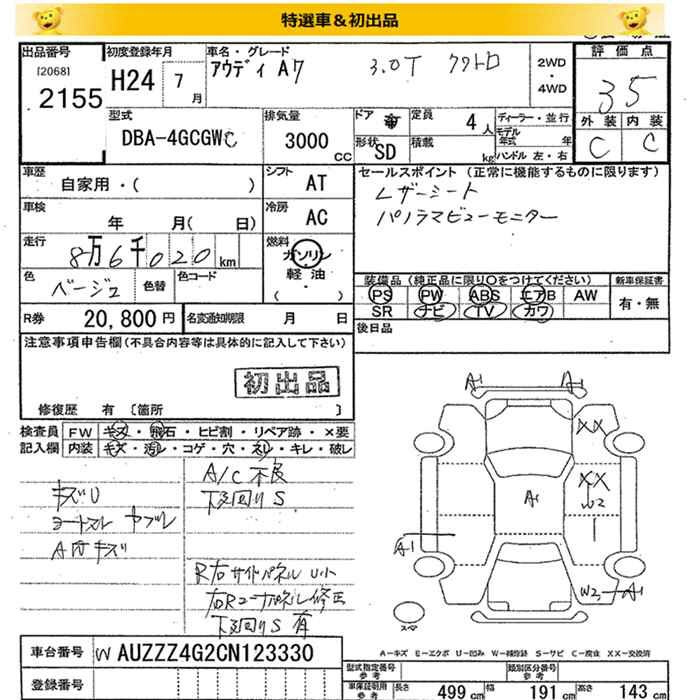 特選車＆初出品
出品番号
[2068]
2155
初度登録年月
H24 7月
車名・グレード
アウディ A7 3.0T クワトロ
2WD・4WD
評価点
3.5
型式
DBA-4GCGWC
排気量
3000 CC
ドア
形状
SD
定員
4人
積載
kg
ディーラー・並行
モデル年式 年
ハンドル 左・右
外装 内装
C C
車歴
自家用・( )
シフト
AT
セールスポイント (正常に機能するものに限ります)
レザーシート
パノラマビューモニター
車検
年 月( 日)
冷房
AC
走行
8万6千020km
燃料
ガソリン
軽・油
( )
色
ベージュ
色替
色コード
装備品 (純正品に限り○をつけてください)
PS PW ABS エアB AW
SR ナビ TV カワ
新車保証書
有・無
R券 20,800円
名変通知期限 月 日
後日品
注意事項申告欄(不具合内容等は具体的に記入して下さい)
初出品
修復歴 有 〔箇所 〕
検査員記入欄
FW キズ・飛石・ヒビ割・リペア跡・×要
内装 キズ・汚レ・コゲ・穴・スレ・キレ・破レ
キズU
ヤブレ
A キズ
A/C 不良
下廻り S
R右サイドパネル U小
右Rコーナーパネル修正
下廻り S 有
A1
A1
XX
XX
W2
A1
A1
W2
A1
スペア
A－キズ E－エクボ U－凹み W－補修跡 S－サビ C－腐食 XX－交換済
車台番号
WAUZZZ4G2CN123330
登録番号
型式指定番号
参考
類別区分番号
参考
車庫証明用
参考
長さ 499 cm 幅 191 cm 高さ 143 cm